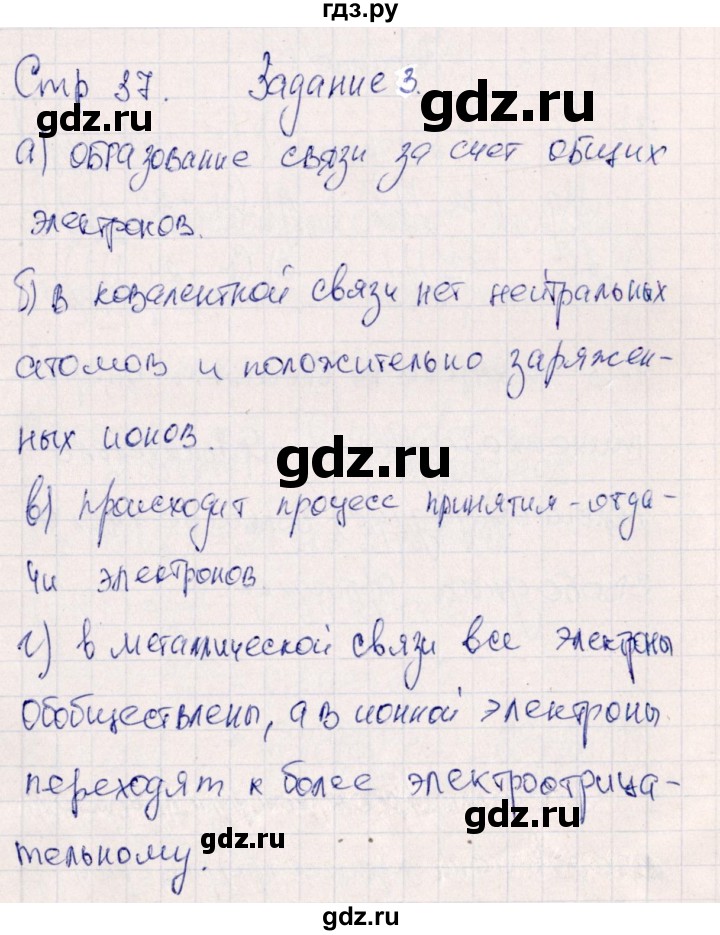 гдз.ру
Стр 37. Задание 3.
gdz.ru
gdz.ru
а) образование связи за счет общих
электронов.
б) в ковалентной связи нет нейтральных
атомов и положительно заряжен-
ных ионов.
gdz.ru
в) происходит процесс принятия-отда-
чи электронов.
г) в металлической связи все электроны
обобществлены, а в ионной электроны
переходят к более электроотрица-
gdz.ru
gdz.ru
тельному.
gdz.ru